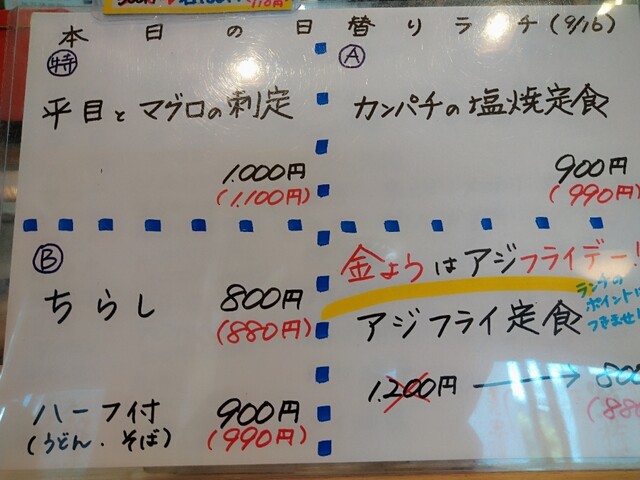 本日の日替りランチ(9/16)
特
平目とマグロの刺定
1.000円
(1,100円)
A
カンパチの塩焼定食
900円
(990円)
B
ちらし 800円
(880円)
ハーフ付 900円
(うどん・そば) (990円)
金ようはアジフライデー!
アジフライ定食
ランチの
ポイント
つきませ
1.200円 → 800
(88